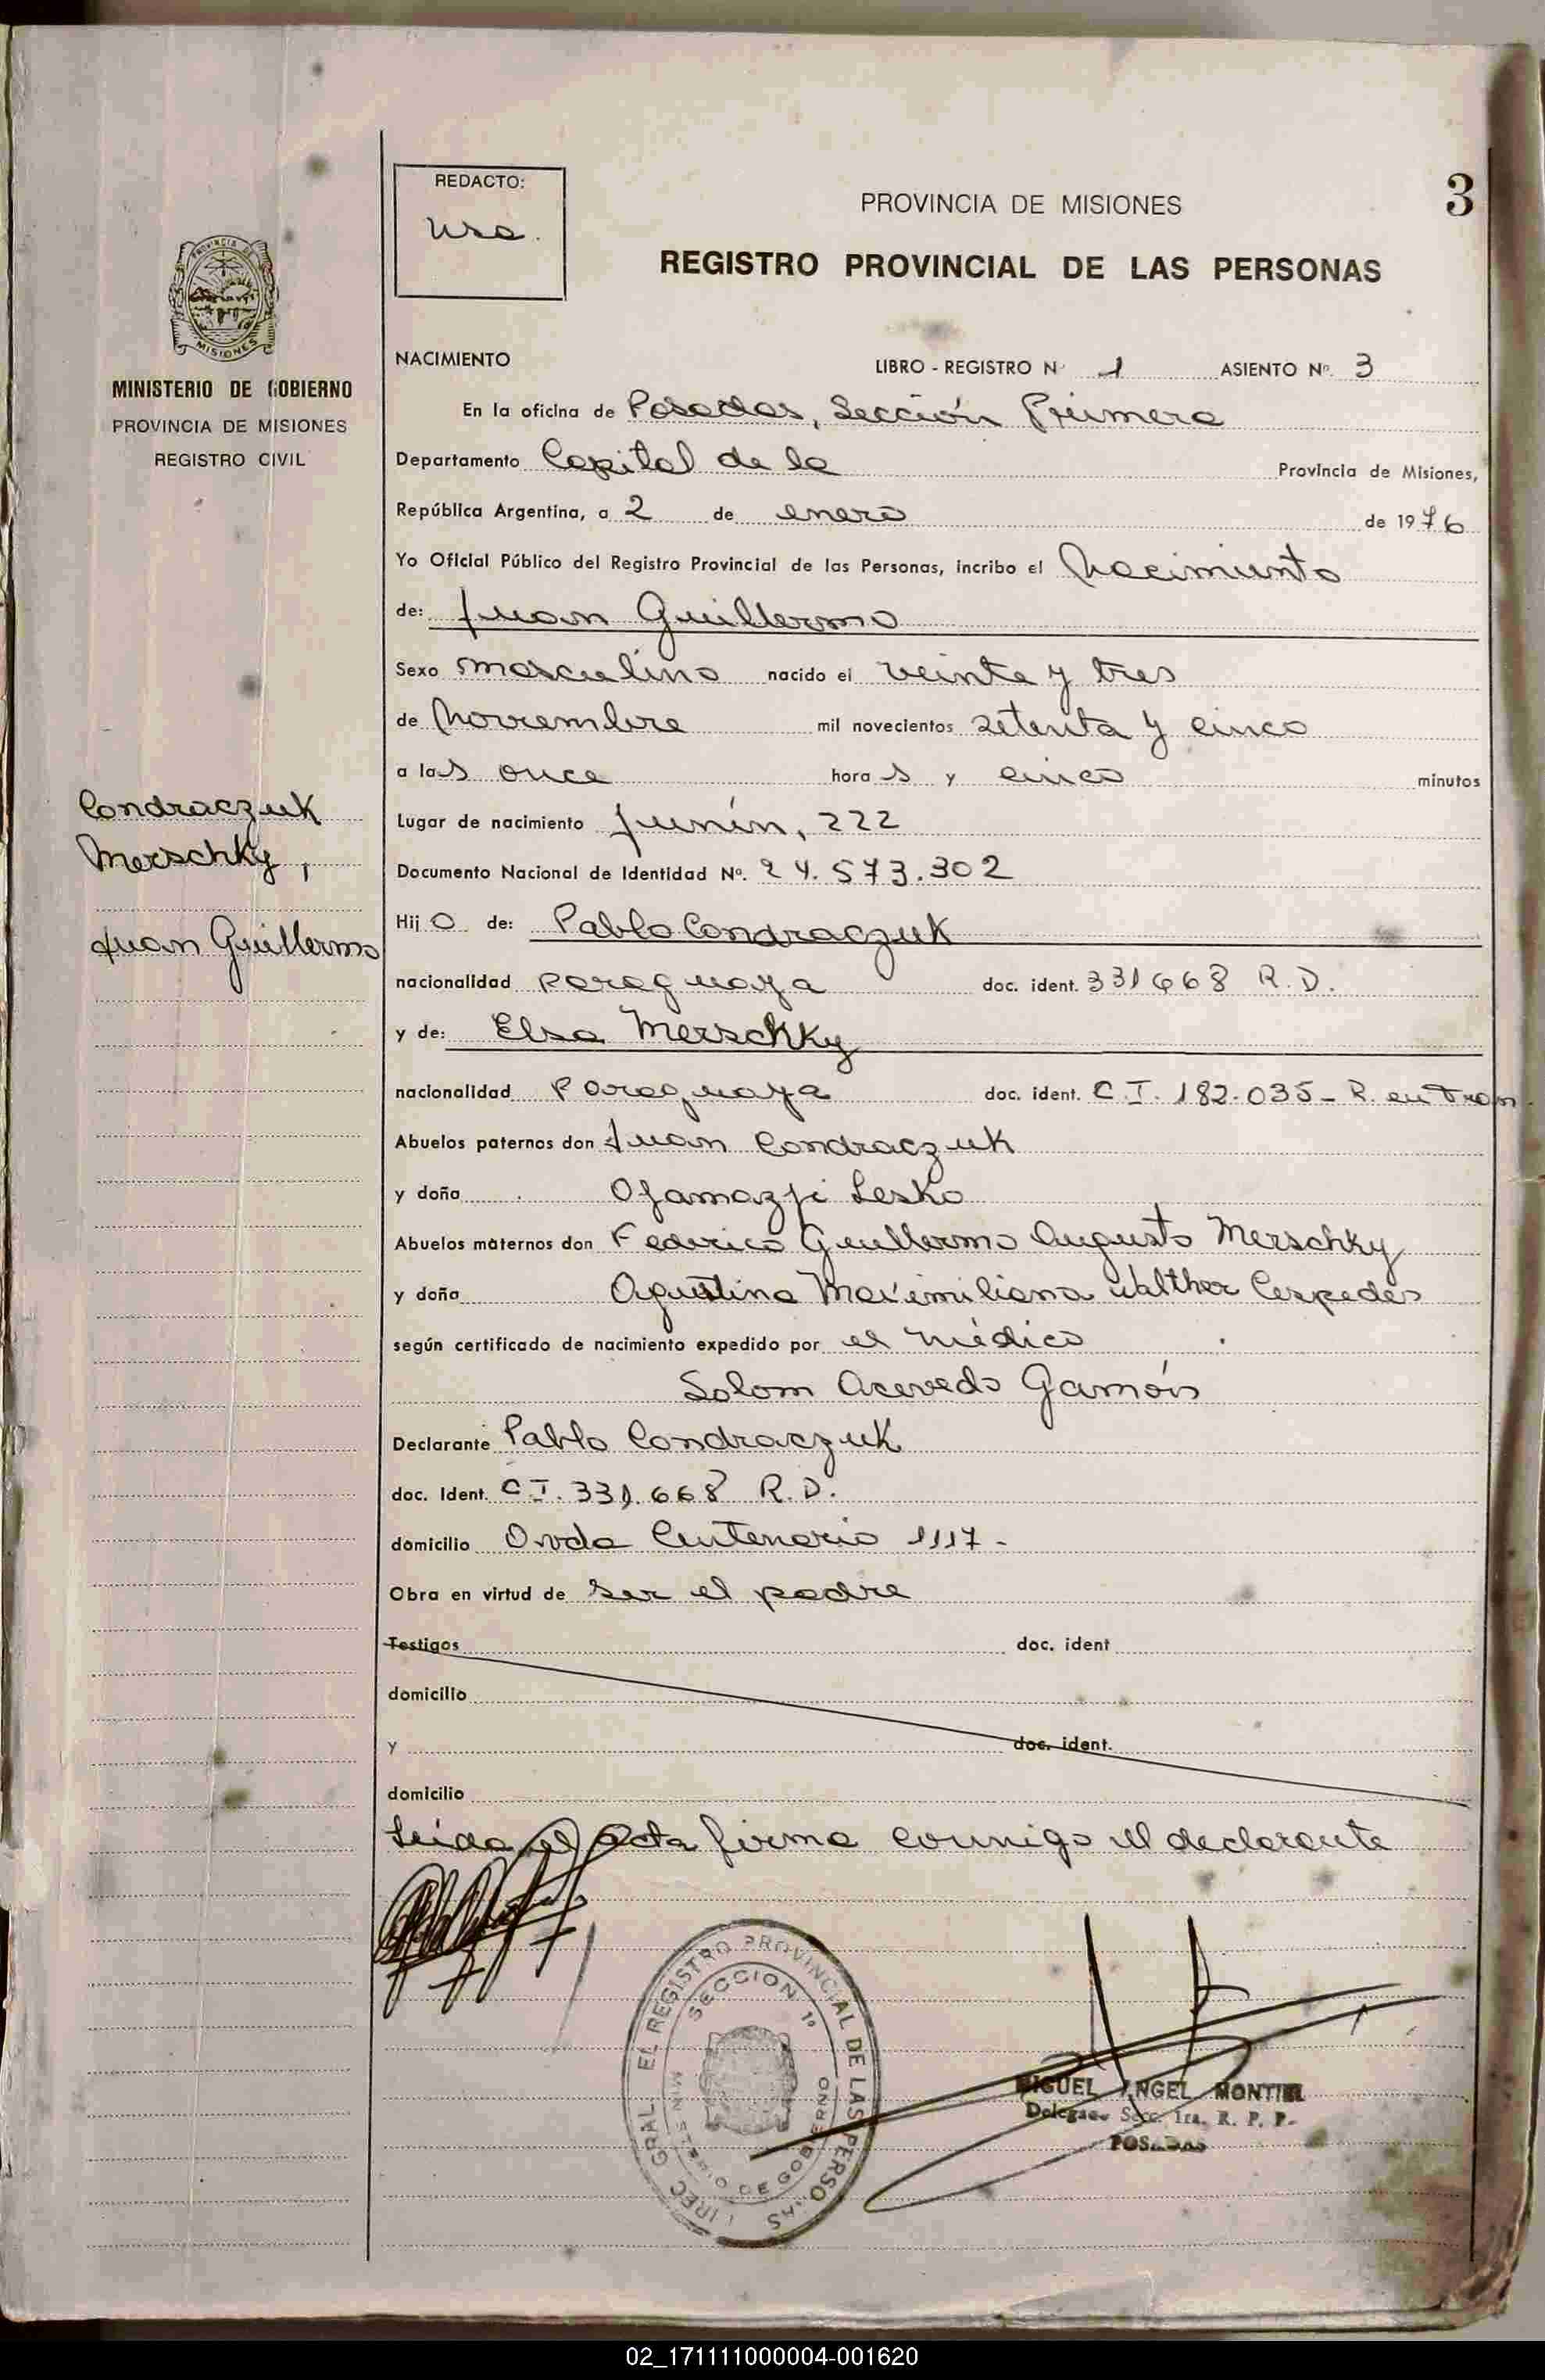 3
REDACTO:
PROVINCIA DE MISIONES
REGISTRO PROVINCIAL DE LAS PERSONAS
MINISTERIO DE GOBIERNO
PROVINCIA DE MISIONES
REGISTRO CIVIL
NACIMIENTO LIBRO - REGISTRO Nº 1 ASIENTO Nº. 3
En la oficina de Posadas, Sección Primera
Departamento Capital de la Provincia de Misiones,
República Argentina, a 2 de enero de 1976
Yo Oficial Público del Registro Provincial de las Personas, incribo el Nacimiento
de: Juan Guillermo
Sexo masculino nacido el veinte y tres
de Noviembre mil novecientos setenta y cinco
a las once horas y cinco minutos
Condraczuk
Merschky,
Juan Guillermo
Lugar de nacimiento Junín, 222
Documento Nacional de Identidad Nº. 24.573.302
Hijo de: Pablo Condraczuk
nacionalidad paraguaya doc. ident. 331668 R.D.
y de: Elsa Merschky
nacionalidad Paraguaya doc. ident. C.I. 182.035- R. en Tram.
Abuelos paternos don Juan Condraczuk
y doña Lesko
Abuelos maternos don Federico Guillermo Augusto Merschky
y doña Agustina Maximiliana Walther Cespedes
según certificado de nacimiento expedido por el médico
Solom Acevedo
Declarante Pablo Condraczuk
doc. Ident. C.I. 331.668 R.D.
domicilio Centenario 1117-
Obra en virtud de ser el padre
Testigos doc. ident
domicilio
y doc. ident.
domicilio
Leida el acta firma conmigo el declarante
DIREC GRAL EL REGISTRO PROVINCIAL DE LAS PERSONAS
SECCION 1º
MINISTERIO DE GOBIERNO
MIGUEL ANGEL MONTIEL
Delegado Secc. 1ra. R. P. P.
POSADAS
02_171111000004-001620